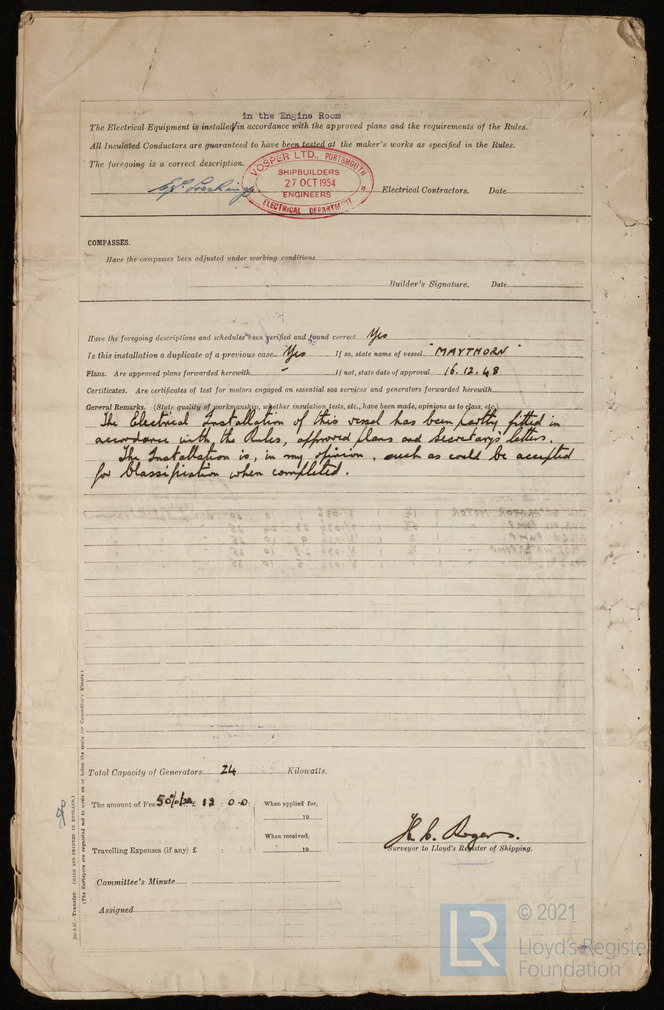 in the Engine Room
The Electrical Equipment is installed/in accordance with the approved plans and the requirements of the Rules.
All Insulated Conductors are guaranteed to have been tested at the maker's works as specified in the Rules.
The foregoing is a correct description.
VOSPER LTD., PORTSMOUTH
SHIPBUILDERS
27 OCT 1954
ENGINEERS
ELECTRICAL DEPARTMENT
Electrical Contractors. Date
COMPASSES.
Have the compasses been adjusted under working conditions
Builder's Signature. Date
Have the foregoing descriptions and schedules been verified and found correct Yes
Is this installation a duplicate of a previous case Yes If so, state name of vessel "MAYTHORN"
Plans. Are approved plans forwarded herewith - If not, state date of approval 16.12.48
Certificates. Are certificates of test for motors engaged on essential sea services and generators forwarded herewith
General Remarks. (State quality of workmanship, whether insulation tests, etc., have been made, opinions as to class, etc.)
The Electrical Installation of this vessel has been partly fitted in
accordance with the Rules, approved plans and Secretary's letters.
The Installation is, in my opinion, such as could be accepted
for Classification when completed.
Total Capacity of Generators 24 Kilowatts.
The amount of Fee 50% £ 12 : 0 : 0 When applied for,
19
When received,
Travelling Expenses (if any) £ : : 19
H. C. Rogers.
Surveyor to Lloyd's Register of Shipping.
Committee's Minute
Assigned
Transfer. (MADE AND PRINTED IN ENGLAND.)
(The Surveyors are requested not to write on or below the space for Committee's Minute.)
LR
© 2021
Lloyd's Register
Foundation